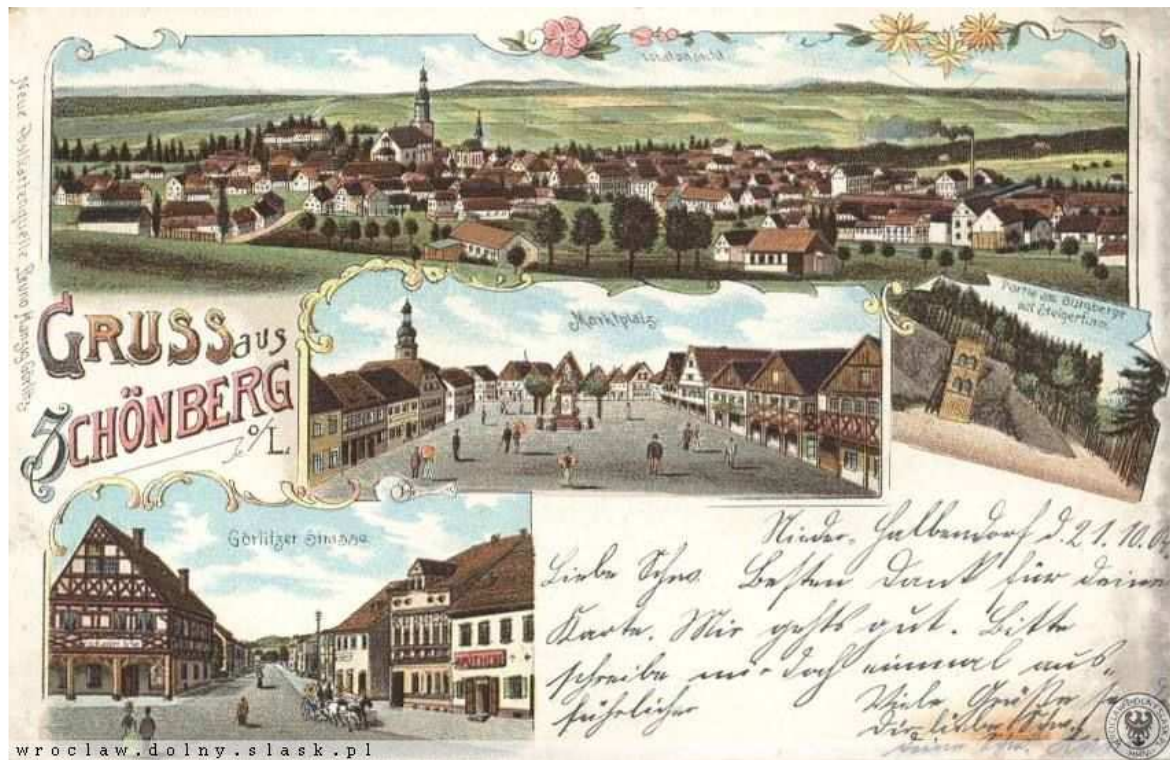 Totalansicht.
Neue Postkartenquelle Bruno Hansge, Görlitz
GRUSS aus
SCHÖNBERG
o/L.
Marktplatz
Partie am Burgberge
mit Steigerturm.
Görlitzer Strasse
Nieder-Halbendorf d. 21.10.
Liebe Schw. Besten Dank für deine
Karte. Mir gehts gut. Bitte
schreibe mir doch einmal aus-
führlicher
Viele Grüße
Dir liebe Schw.
wroclaw.dolny.slask.pl